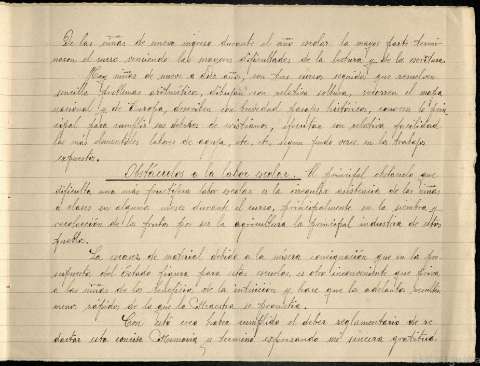 De las niñas de nuevo ingreso durante el año escolar, la mayor parte termi-
naron el curso venciendo las mayores dificultades de la lectura y de la escritura.
Hay niñas de nueve a diez años, con tres cursos seguidos que resuelven
sencillos problemas aritméticos, dibujan con relativa soltura, recorren el mapa
nacional y de Europa, describen con brevedad pasajes históricos, conocen lo prin-
cipal para cumplir sus deberes de cristianos, ejecutan con relativa facilidad
las más elementales labores de aguja, etc, etc, según pudo verse en los trabajos
expuestos.
Obstáculos a la labor escolar. El principal obstáculo que
dificulta una más fructífera labor escolar es la asistencia de las niñas
a clases en algunos meses durante el curso, principalmente en la siembra y
recolección de los frutos por ser la agricultura la principal industria de estos
pueblos.
La escasez de material debido a la mísera consignación que en los pre-
supuestos del Estado figura para estas escuelas, es otro inconveniente que priva
a las niñas de los beneficios de la intuición y hace que los adelantos resulten
menos rápidos de lo que la Maestra se proponía.
Con esto creo haber cumplido el deber reglamentario de re-
dactar esta concisa Memoria y termino expresando mi sincera gratitud